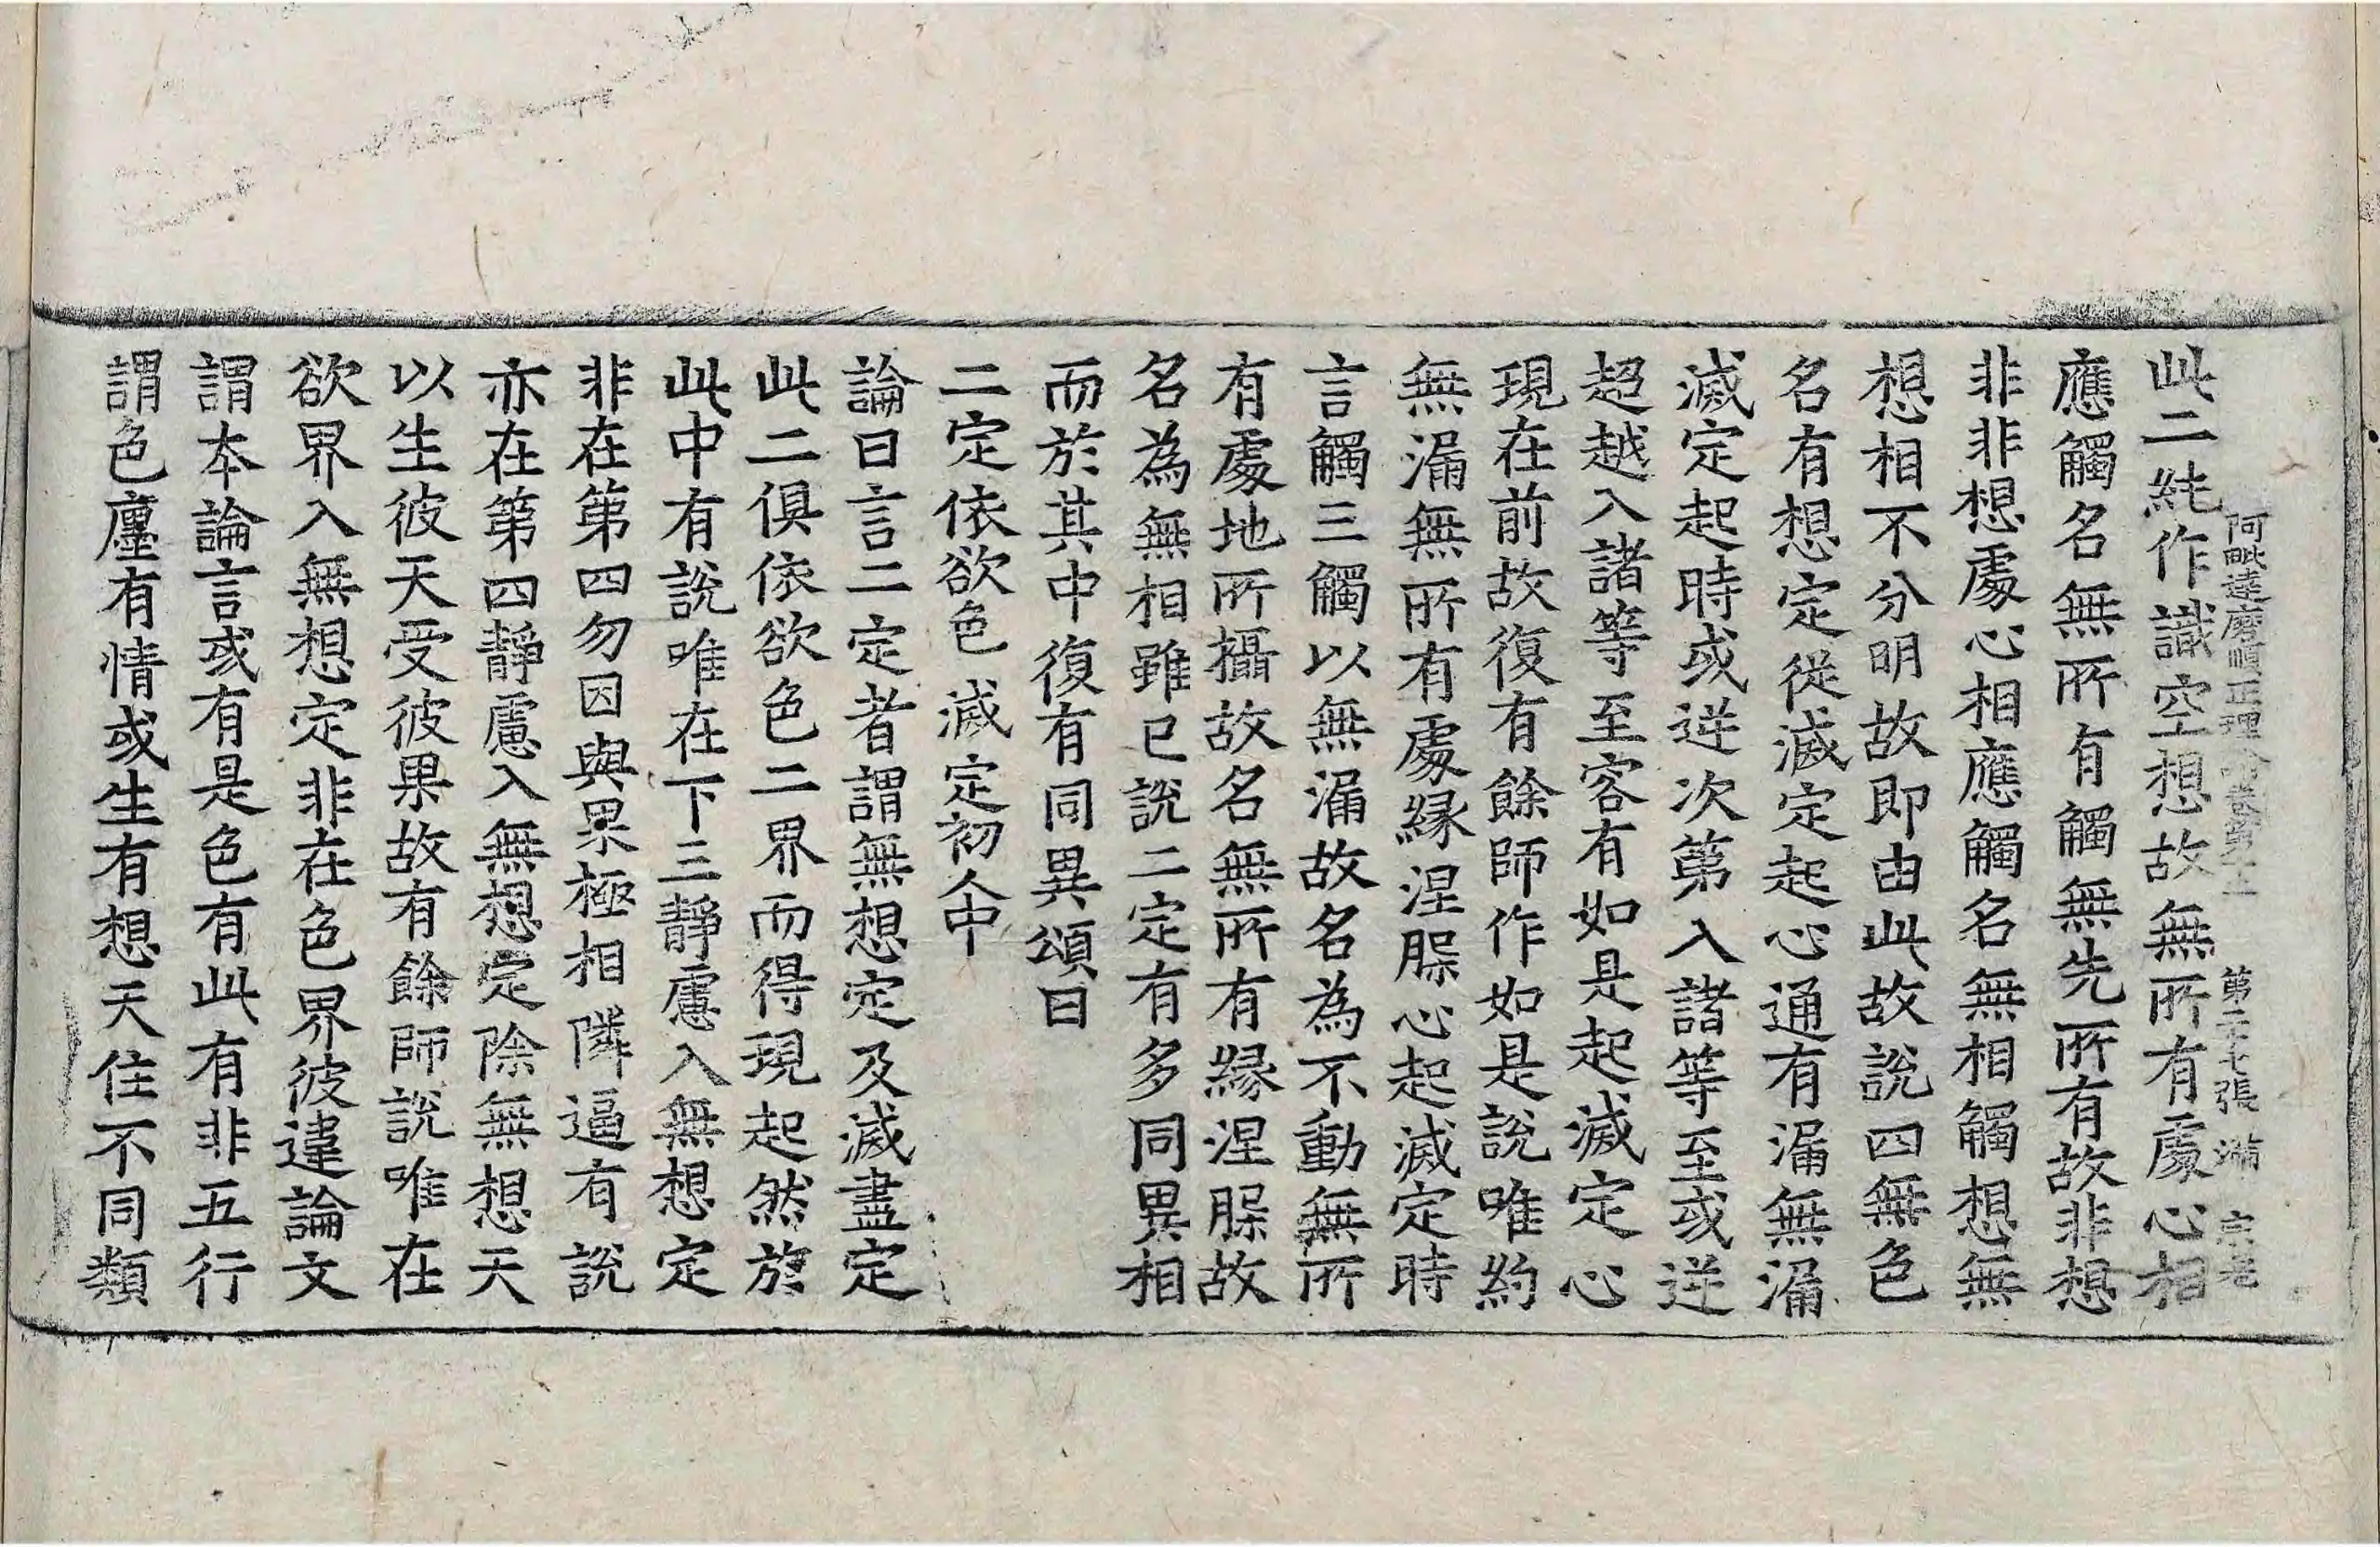 阿毗達磨順正理論卷第十三　第二十七張　滿
此二純作識空想故無所有處心相
應觸名無所有觸無先所有故非想
非非想處心相應觸名無相觸想無
想相不分明故即由此故說四無色
名有想定從滅定起心通有漏無漏
滅定起時或逆次第入諸等至或逆
超越入諸等至容有如是起滅定心
現在前故復有餘師作如是說唯約
無漏無所有處緣涅槃心起滅定時
言觸三觸以無漏故名為不動無所
有處地所攝故名無所有緣涅槃故
名為無相雖已說二定有多同異相
而於其中復有同異頌曰
二定依欲色　滅定初人中
論曰言二定者謂無想定及滅盡定
此二俱依欲色二界而得現起然於
此中有說唯在下三靜慮入無想定
非在第四勿因與果極相隣逼有說
亦在第四靜慮入無想定除無想天
以生彼天受彼果故有餘師說唯在
欲界入無想定非在色界彼違論文
謂本論言或有是色有此有非五行
謂色廛有情或生有想天住不同類